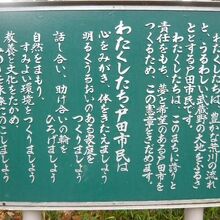 わたくしたちは、豊かな荒川の流れ
と、うるわしい武蔵野の大地をふるさ
ととする戸田市民です。
わたくしたちは、この市に誇りと
責任をもち、夢と希望のある戸田市を
つくるため、この憲章をさだめます。
わたくしたち戸田市民は
心をみがき、体をきたえましょう
明るくうるおいのある家庭を
つくりましょう
話し合い、助け合いの輪を
ひろげましょう
自然をまもり、
すみよい環境をつくりましょう
教養と文化をたかめ、
未来をのこしましょう